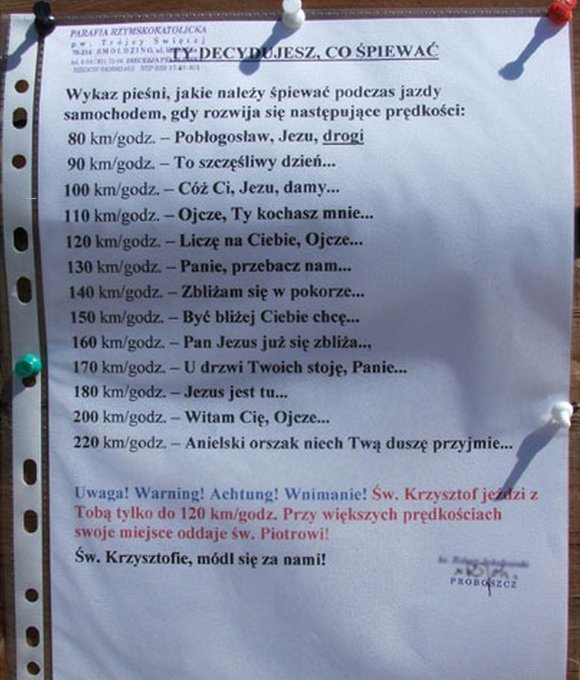 PARAFIA RZYMSKOKATOLICKA
pw. Trójcy Świętej
TY DECYDUJESZ, CO ŚPIEWAĆ
Wykaz pieśni, jakie należy śpiewać podczas jazdy
samochodem, gdy rozwija się następujące prędkości:
80 km/godz. – Pobłogosław, Jezu, drogi
90 km/godz. – To szczęśliwy dzień...
100 km/godz. – Cóż Ci, Jezu, damy...
110 km/godz. – Ojcze, Ty kochasz mnie...
120 km/godz. – Liczę na Ciebie, Ojcze...
130 km/godz. – Panie, przebacz nam...
140 km/godz. – Zbliżam się w pokorze...
150 km/godz. – Być bliżej Ciebie chcę...
160 km/godz. – Pan Jezus już się zbliża..,
170 km/godz. – U drzwi Twoich stoję, Panie...
180 km/godz. – Jezus jest tu...
200 km/godz. – Witam Cię, Ojcze...
220 km/godz. – Anielski orszak niech Twą duszę przyjmie...
Uwaga! Warning! Achtung! Wnimanie! Św. Krzysztof jeździ z
Tobą tylko do 120 km/godz. Przy większych prędkościach
swoje miejsce oddaje św. Piotrowi!
Św. Krzysztofie, módl się za nami!
PROBOSZCZ